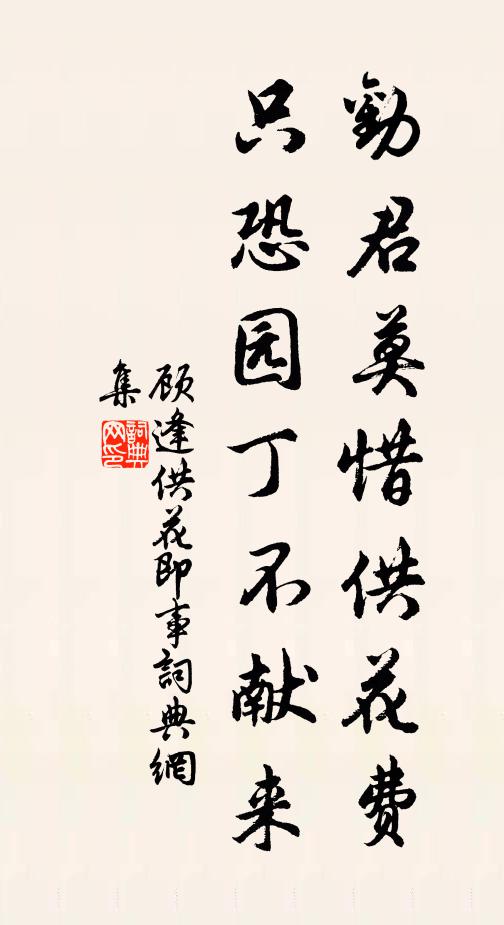 勸君莫惜供花费
只恐园丁不献来
顾逢供花即事詞典網
集
詞典网印